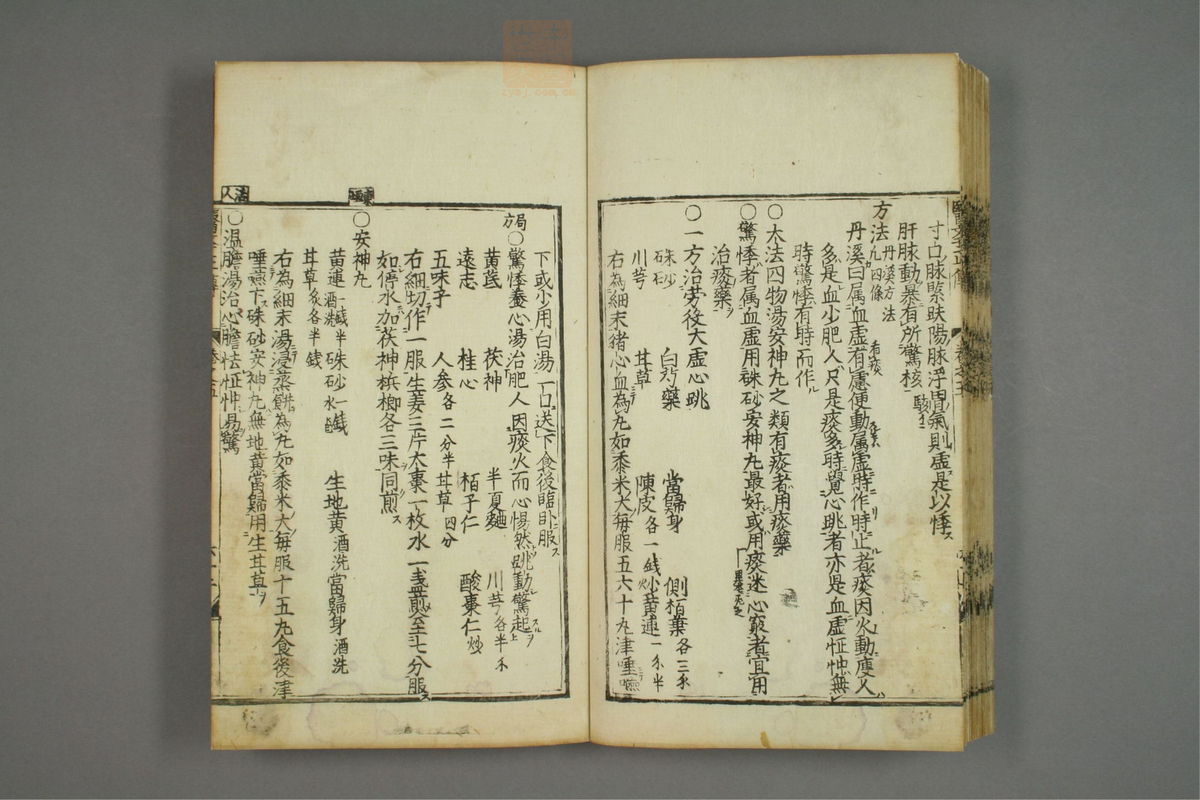 寸口脉緊趺陽脉浮胃氣則虛是以悸
肝脉動暴有所驚核
方法 丹溪方法 凡四條
丹溪曰属血虛有痰者慮便動属虛時作時止者痰因火動瘦人
多是血少肥人只是痰多時覺心跳者亦是血虛怔忡無
時驚悸有時而作
○大法四物湯安神丸之類有痰者用痰藥
○驚悸者属血虛用硃砂安神丸最好或用痰迷心竅者宜用
治痰藥
○一方治勞役大虛心跳
硃砂 白芍藥 當歸身 側栢葉 各三
川芎 甘草 陳皮 各一 炒黄連 一 半
右為細末猪心血為丸如黍米大每服五六十丸津唾嚥
下或少用白湯一口送下食後臨卧服
局方○驚悸養心湯治肥人因痰火而心惕然跳動驚起
黄芪 茯神 半夏麯 川芎 各半
遠志 桂心 栢子仁 酸棗仁 炒
五味子 人参 各二分半 甘草 四分
右細切作一服生姜三片大棗一枚水一盞煎至七分服
如停水加茯神梹榔各三味同煎
東垣
○安神丸
黄連 一錢半 酒洗 硃砂 水 一錢 生地黄 酒洗 當歸身 酒洗
甘草 炙各半錢
右為細末湯浸蒸餅為丸如黍米大每服十五丸食後津
唾嚥下硃砂安神丸無地黄當歸用生甘草
活人
○温膽湯治心膽怯怔忡易驚